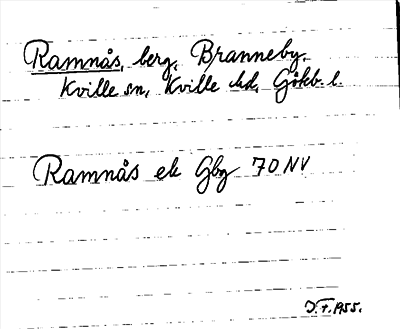 Ramnås, berg, Branneby,
Kville sn, Kville hd, Gökb. l.
Ramnås ek Gbg 70 NV
J.F. 1955.